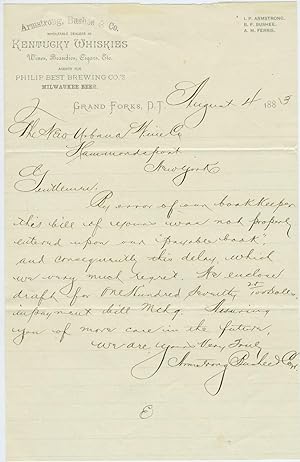 Armstrong, Bushee & Co.
WHOLESALE DEALERS IN
KENTUCKY WHISKIES
Wines, Brandies, Cigars, Etc.
AGENTS FOR
PHILIP BEST BREWING CO.'S
MILWAUKEE BEER.
I. P. ARMSTRONG.
B. F. BUSHEE.
A. M. FERRIS.
GRAND FORKS, D.T. August 4 1883
The New Urbana Wine Co
Hammondsport
New York
Gentlemen.
By error of our book keeper
this bill of yours was not properly
entered upon our "payable book"
and consequently this delay, which
we very much regret. We enclose
draft for One Hundred Seventy Dollars
in payment bill Mchg. Assuring
you of more care in the future,
We are, yours Very Truly
Armstrong Bushee & Co
E